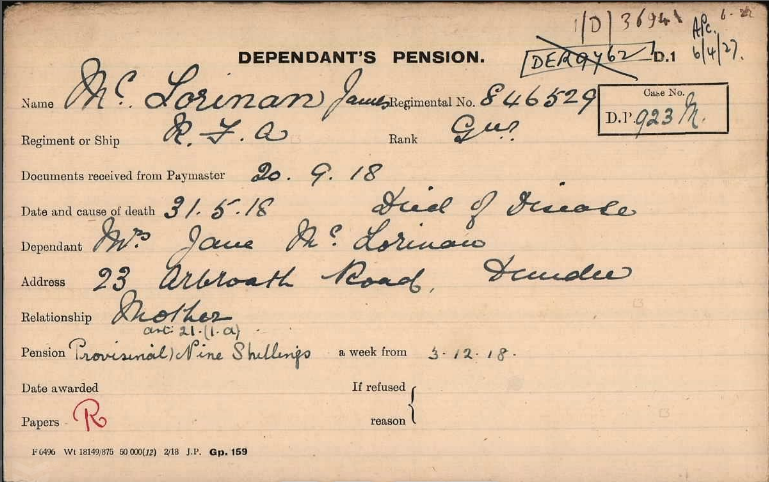 1/D/3694
A/c. 6/4/27.
DEPENDANT'S PENSION.
DER9462 D.1
Name Mc. Lorinan James Regimental No. 846529
Case No.
D.P. 923 M.
Regiment or Ship R. F. A Rank Gnr
Documents received from Paymaster 20. 9. 18
Date and cause of death 31. 5. 18 Died of Disease
Dependant Mrs Jane Mc. Lorinan
Address 23 Arbroath Road, Dundee
Relationship Mother
art 21.(1.a)
Pension Provisinal) Nine Shillings a week from 3. 12. 18.
Date awarded If refused
Papers R reason
F 6496 Wt 18149/875 50 000(12) 2/18 J.P. Gp. 159